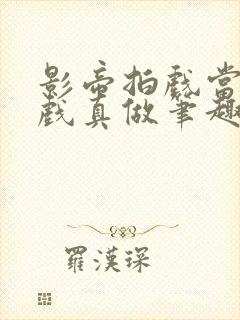 影帝拍戲當
戲真做筆趣
羅漢琛